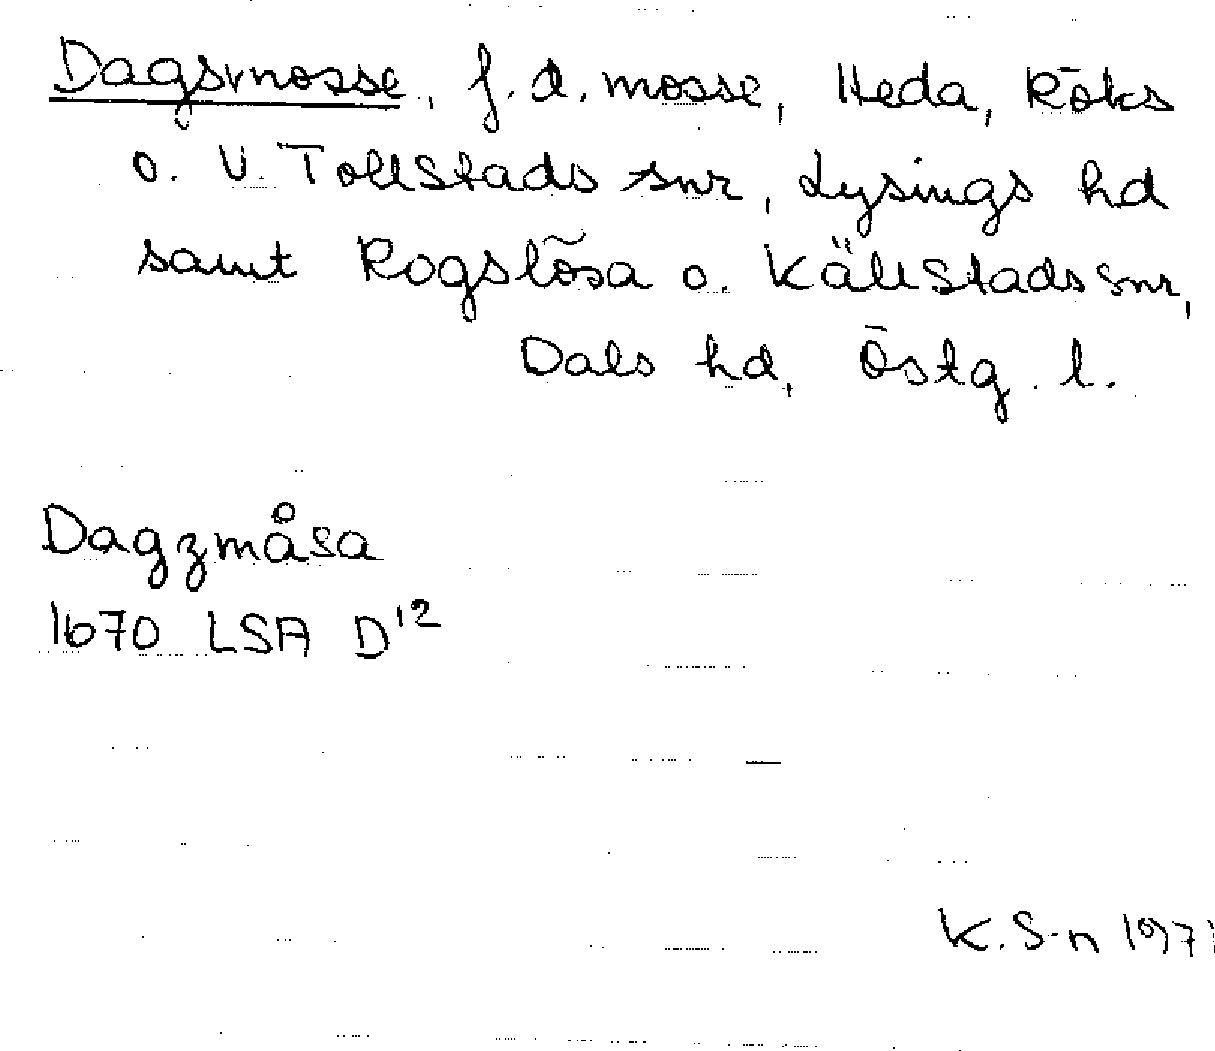 Dagsmosse, f.d. mosse, Heda, Röks
o. V. Tollstads snr, Lysings hd
samt Rogslösa o. Källstads snr,
Dals hd, Östg. l.
Dagzmåsa
1670 LSA D12
K. S-n 1971